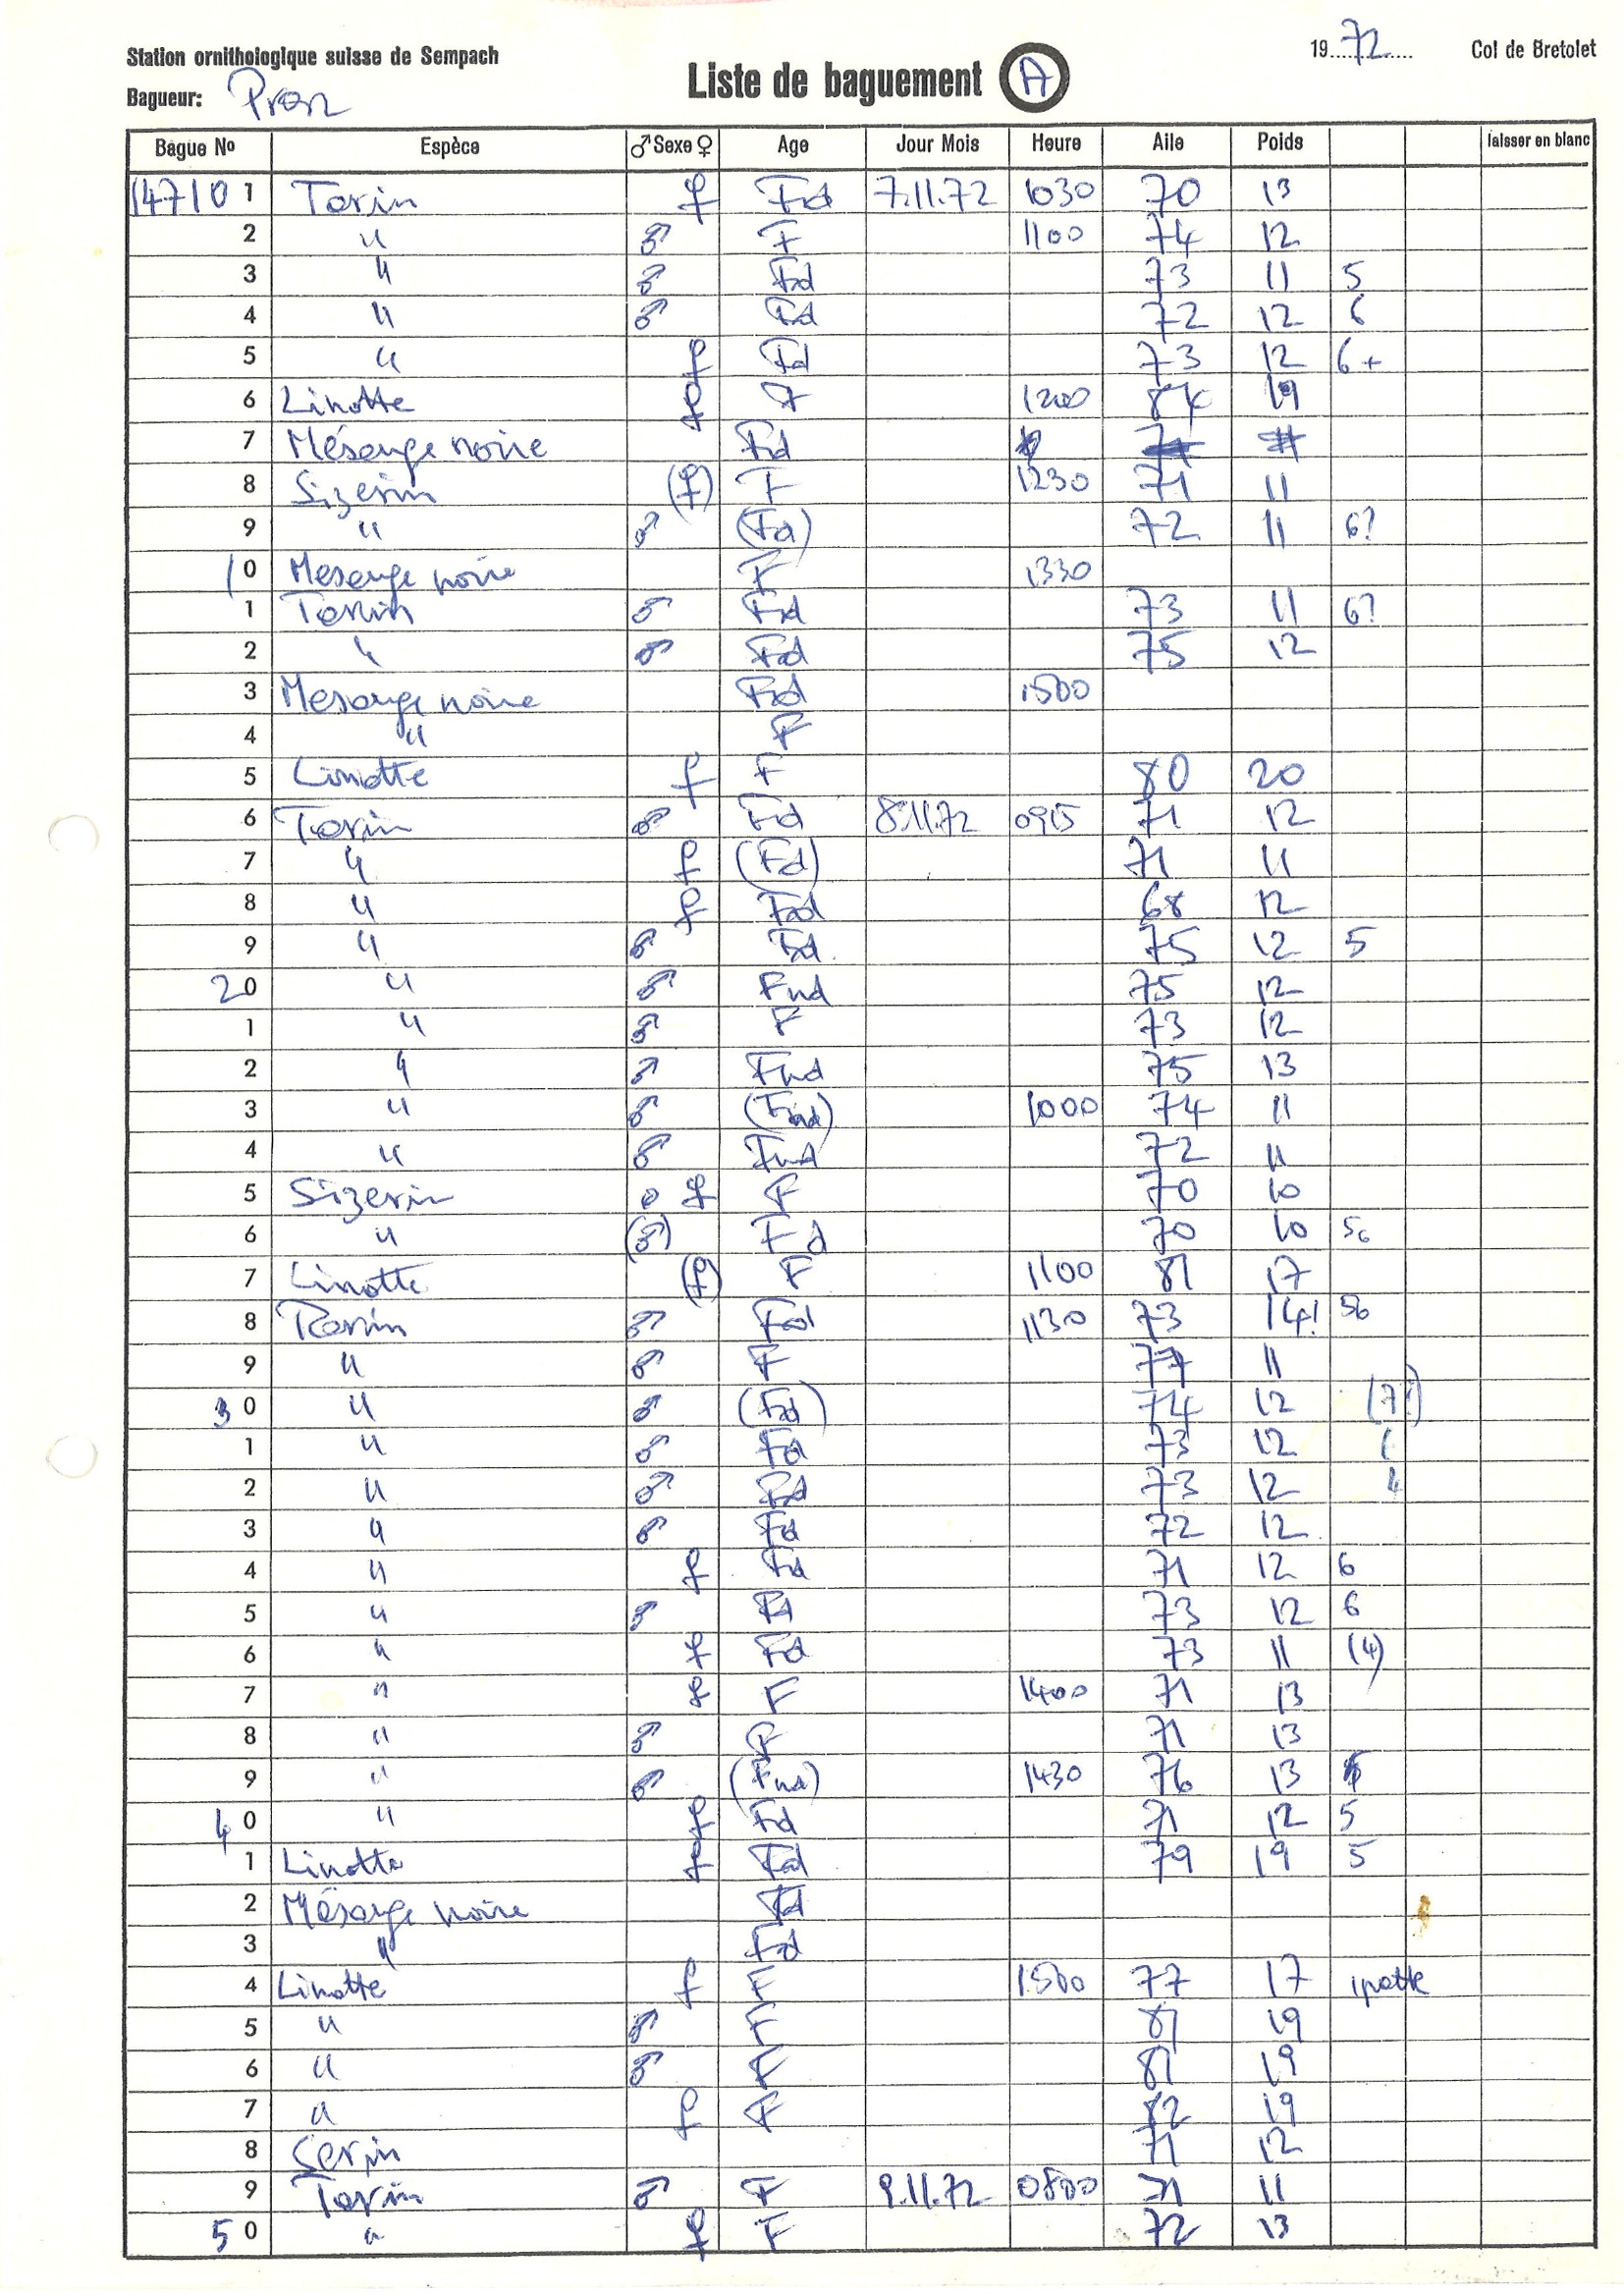 Station ornithologique suisse de Sempach
Bagueur:
Liste de baguement A
1972 Col de Bretolet
Bague No Espèce ♂ Sexe ♀ Age Jour Mois Heure Aile Poids laisser en blanc
147101 Tarin ♀ Fnd 7.11.72 1030 70 13
2 " ♂ F 1100 74 12
3 " ♂ Fd 73 11 5
4 " ♂ Fd 72 12 6
5 " ♀ Fd 73 12 6+
6 Linotte ♀ F 1200 84 19
7 Mésange noire Fd
8 Sizerin (♀) F 1230 71 11
9 " ♂ (Fd) 72 11 6?
10 Mesange noire F 1330
1 Tarin ♂ Fd 73 11 6?
2 " ♂ Fd 75 12
3 Mesange noire Fd 1500
4 " F
5 Linotte ♀ F 80 20
6 Tarin ♂ Fd 8.11.72 0915 71 12
7 " ♀ (Fd) 71 11
8 " ♀ Fd 68 12
9 " ♂ Fd 75 12 5
20 " ♂ Fnd 75 12
1 " ♂ F 73 12
2 " ♂ Fnd 75 13
3 " ♂ (Fnd) 1000 74 11
4 " ♂ Fnd 72 11
5 Sizerin ♀ F 70 10
6 " (♂) Fd 70 10 56
7 Linotte (♀) F 1100 81 17
8 Tarin ♂ Fd 1130 73 14! 56
9 " ♂ F 77 11
30 " ♂ (Fd) 74 12 (7?)
1 " ♂ Fd 73 12
2 " ♂ Fd 73 12 4
3 " ♂ Fd 72 12
4 " ♀ Fd 71 12 6
5 " ♂ Fd 73 12 6
6 " ♀ Fd 73 11 (4)
7 " ♀ F 1400 71 13
8 " ♂ F 71 13
9 " ♂ (Fnd) 1430 76 13
40 " ♀ Fd 71 12 5
1 Linotte ♀ Fd 79 19 5
2 Mésange noire Fd
3 " Fd
4 Linotte ♀ F 1500 77 17 1 patte
5 " ♂ F 81 19
6 " ♂ F 81 19
7 " ♀ F 82 19
8 Serin 71 12
9 Tarin ♂ F 9.11.72 0800 71 11
50 " ♀ F 72 13